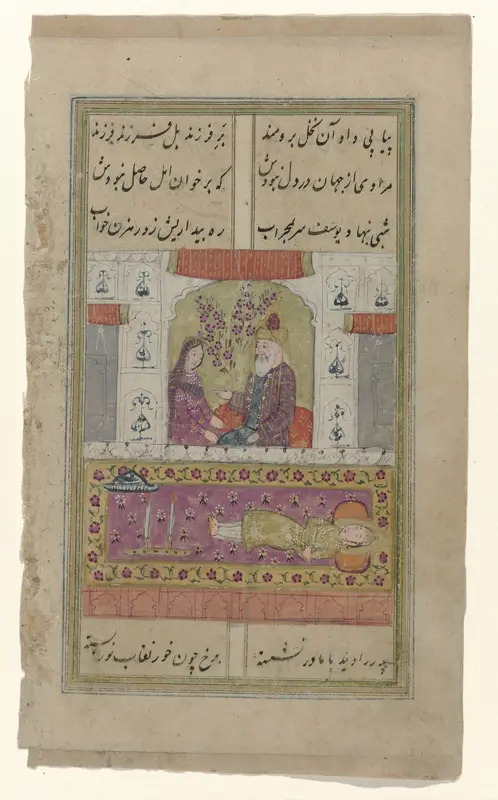 پیاپی داد آن نخل برومند بر فرزند بل فرزند فرزند
مرادی از جهان در دل نبودش که بر خوان امل حاصل نبودش
شبی بنهاد یوسف سر بمحراب ره بیداریش زد رهزن خواب
پدر را دید با مادر نشسته برخ چون خور نقاب نور بسته